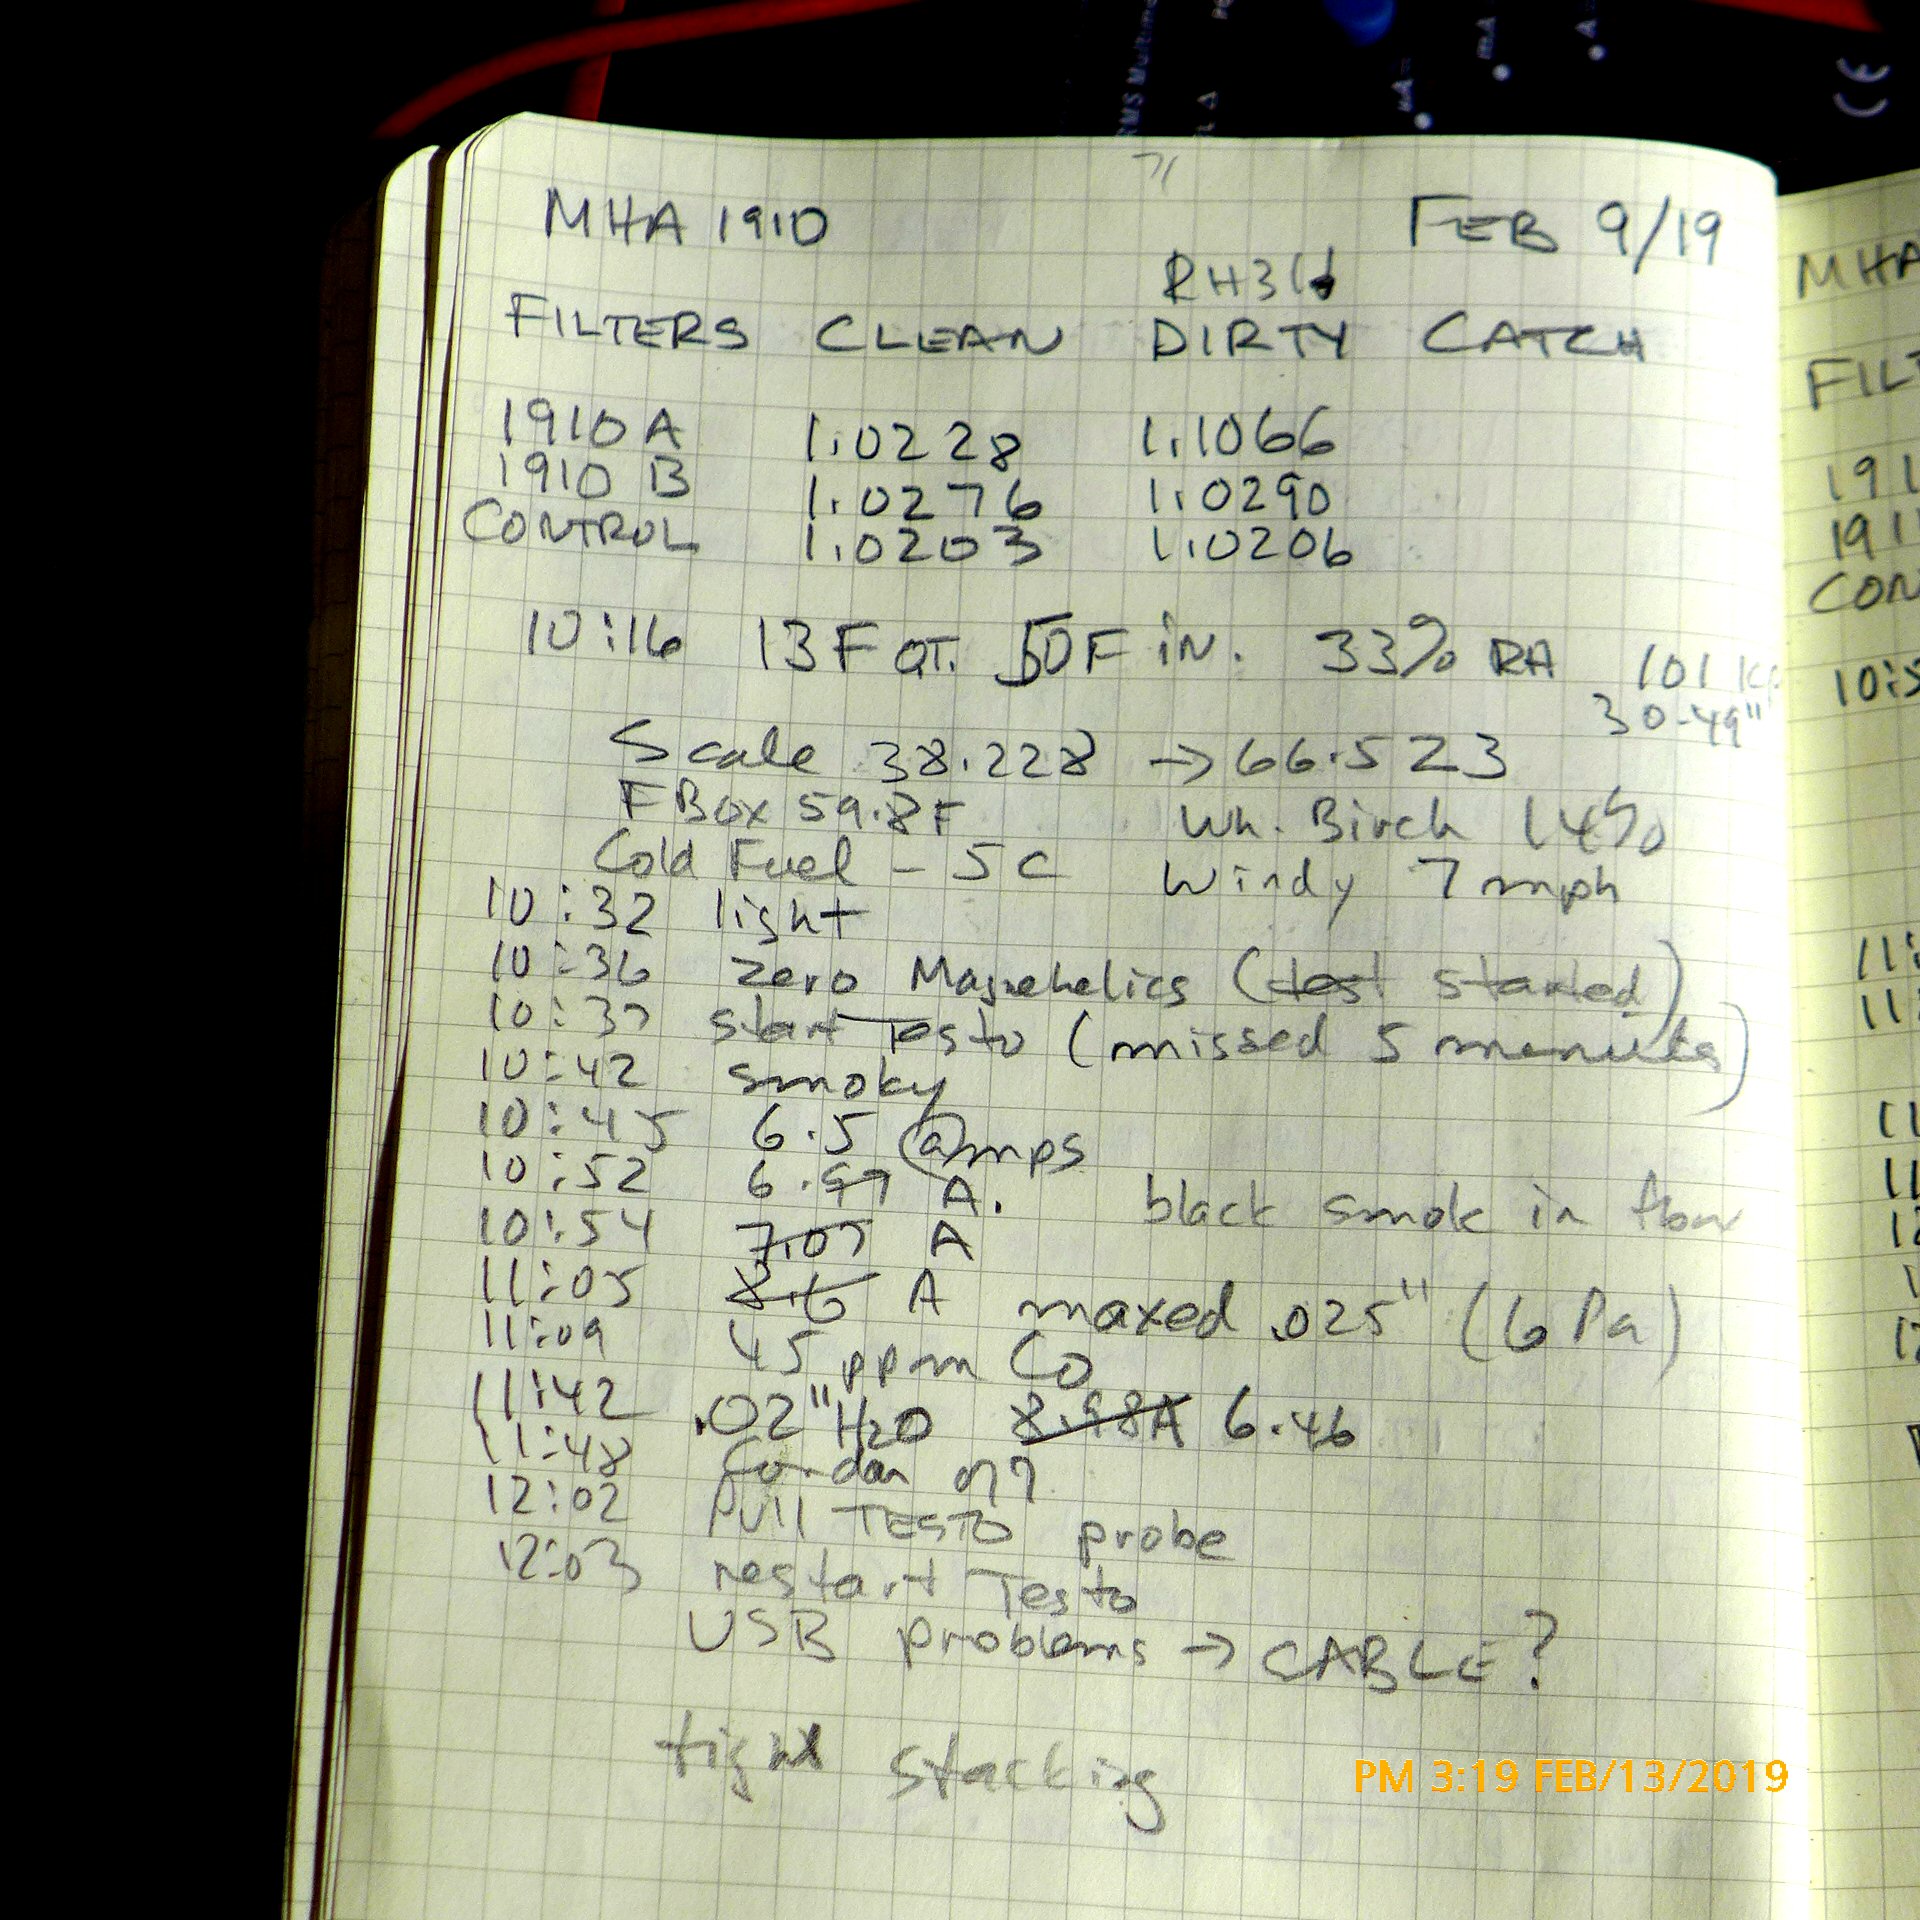 RMS Multim
µA
mA
A
CE
MHA 1910 FEB 9/19
FILTERS CLEAN DIRTY CATCH
1910 A 1.0228 1.1066
1910 B 1.0276 1.0290
CONTROL 1.0203 1.0206
10:16 13F OT. 50F IN. 33% RA 101 K
30.49"
Scale 38.228 → 66.523
FBox 59.8F Wh. Birch 14%
Cold Fuel - 5C Windy 7 mph
10:32 light
10:36 zero Magnehelics (test started)
10:37 start Testo (missed 5 menuts)
10:42 smoky
10:45 6.5 amps
10:52 6.97 A. black smok in flow
10:54 7.07 A
11:05 8.6 A maxed .025" (6 Pa)
11:09 45 ppm Co
11:42 .02" H2O 8.98A 6.46
11:48
12:02 pull TESTO probe
12:03 restart Testo
USB problems → CABLE?
tight stacking
PM 3:19 FEB/13/2019
MHA
FILT
191
191
CON
10:5